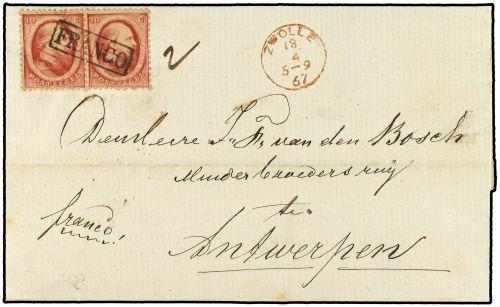 10 C 10 C
FRANCO
POSTZEGEL POSTZEGEL
2
ZWOLLE
18
4
5-9
67
Den Heere J. F. van den Bosch
Minderbroeders ruy
te
Antwerpen
franco!